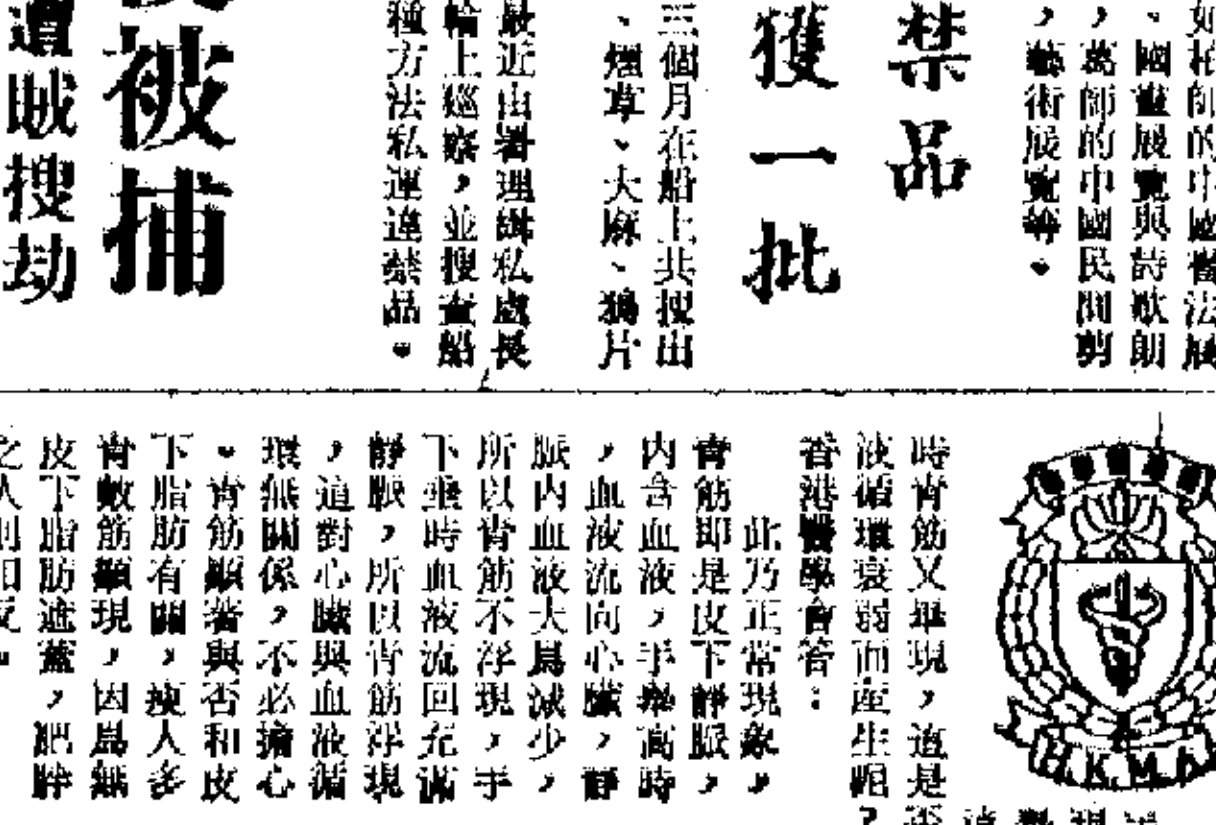 如柏師的中國醫法展
、國畫展覽與詩歌朗
，葛師的中國民間剪
，藝術展覽等。
禁品
獲一批
三個月在船上共搜出
、煙草、大麻、鴉片
最近由署理緝私處長
輪上巡察，並搜查船
種方法私運違禁品。
被捕
遭賊搜劫
時青筋又畢現，這是
液循環衰弱而產生呢
香港醫學會答：
此乃正常現象，
青筋即是皮下靜脈，
内含血液，手舉高時
，血液流向心臟，靜
脈内血液大爲減少，
所以青筋不浮現，手
下垂時血液流回充滿
靜脈，所以青筋浮現
，這對心臟與血液循
環無關係，不必擔心
。青筋顯著與否和皮
下脂肪有關，瘦人多
青蚊筋顯現，因爲無
皮下脂肪遮蓋，肥胖
之人則相反。
H.K.M.A